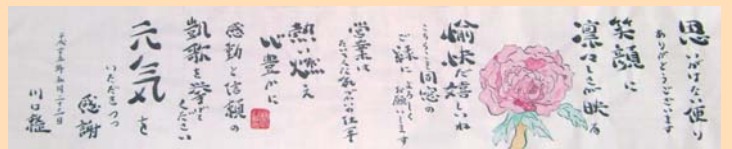 思いがけない便り
ありがとうございます
笑顔に
凛々しさが映る
愉快だ嬉しいね
こちらこそ同窓の
ご縁に よろしく
お願いします
営業は
熱い燃え
心豊かに
感動と信頼の
凱歌を挙げて
ください
元気を
いただきつつ
感謝
川口